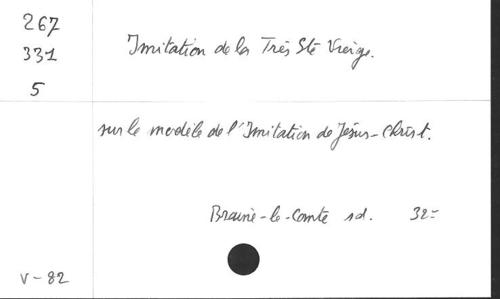 267
331
5
Imitation de la Très Ste Vierge.
sur le modèle de l'Imitation de Jésus-Christ.
Braine-le-Comte sd. 32=
V-82